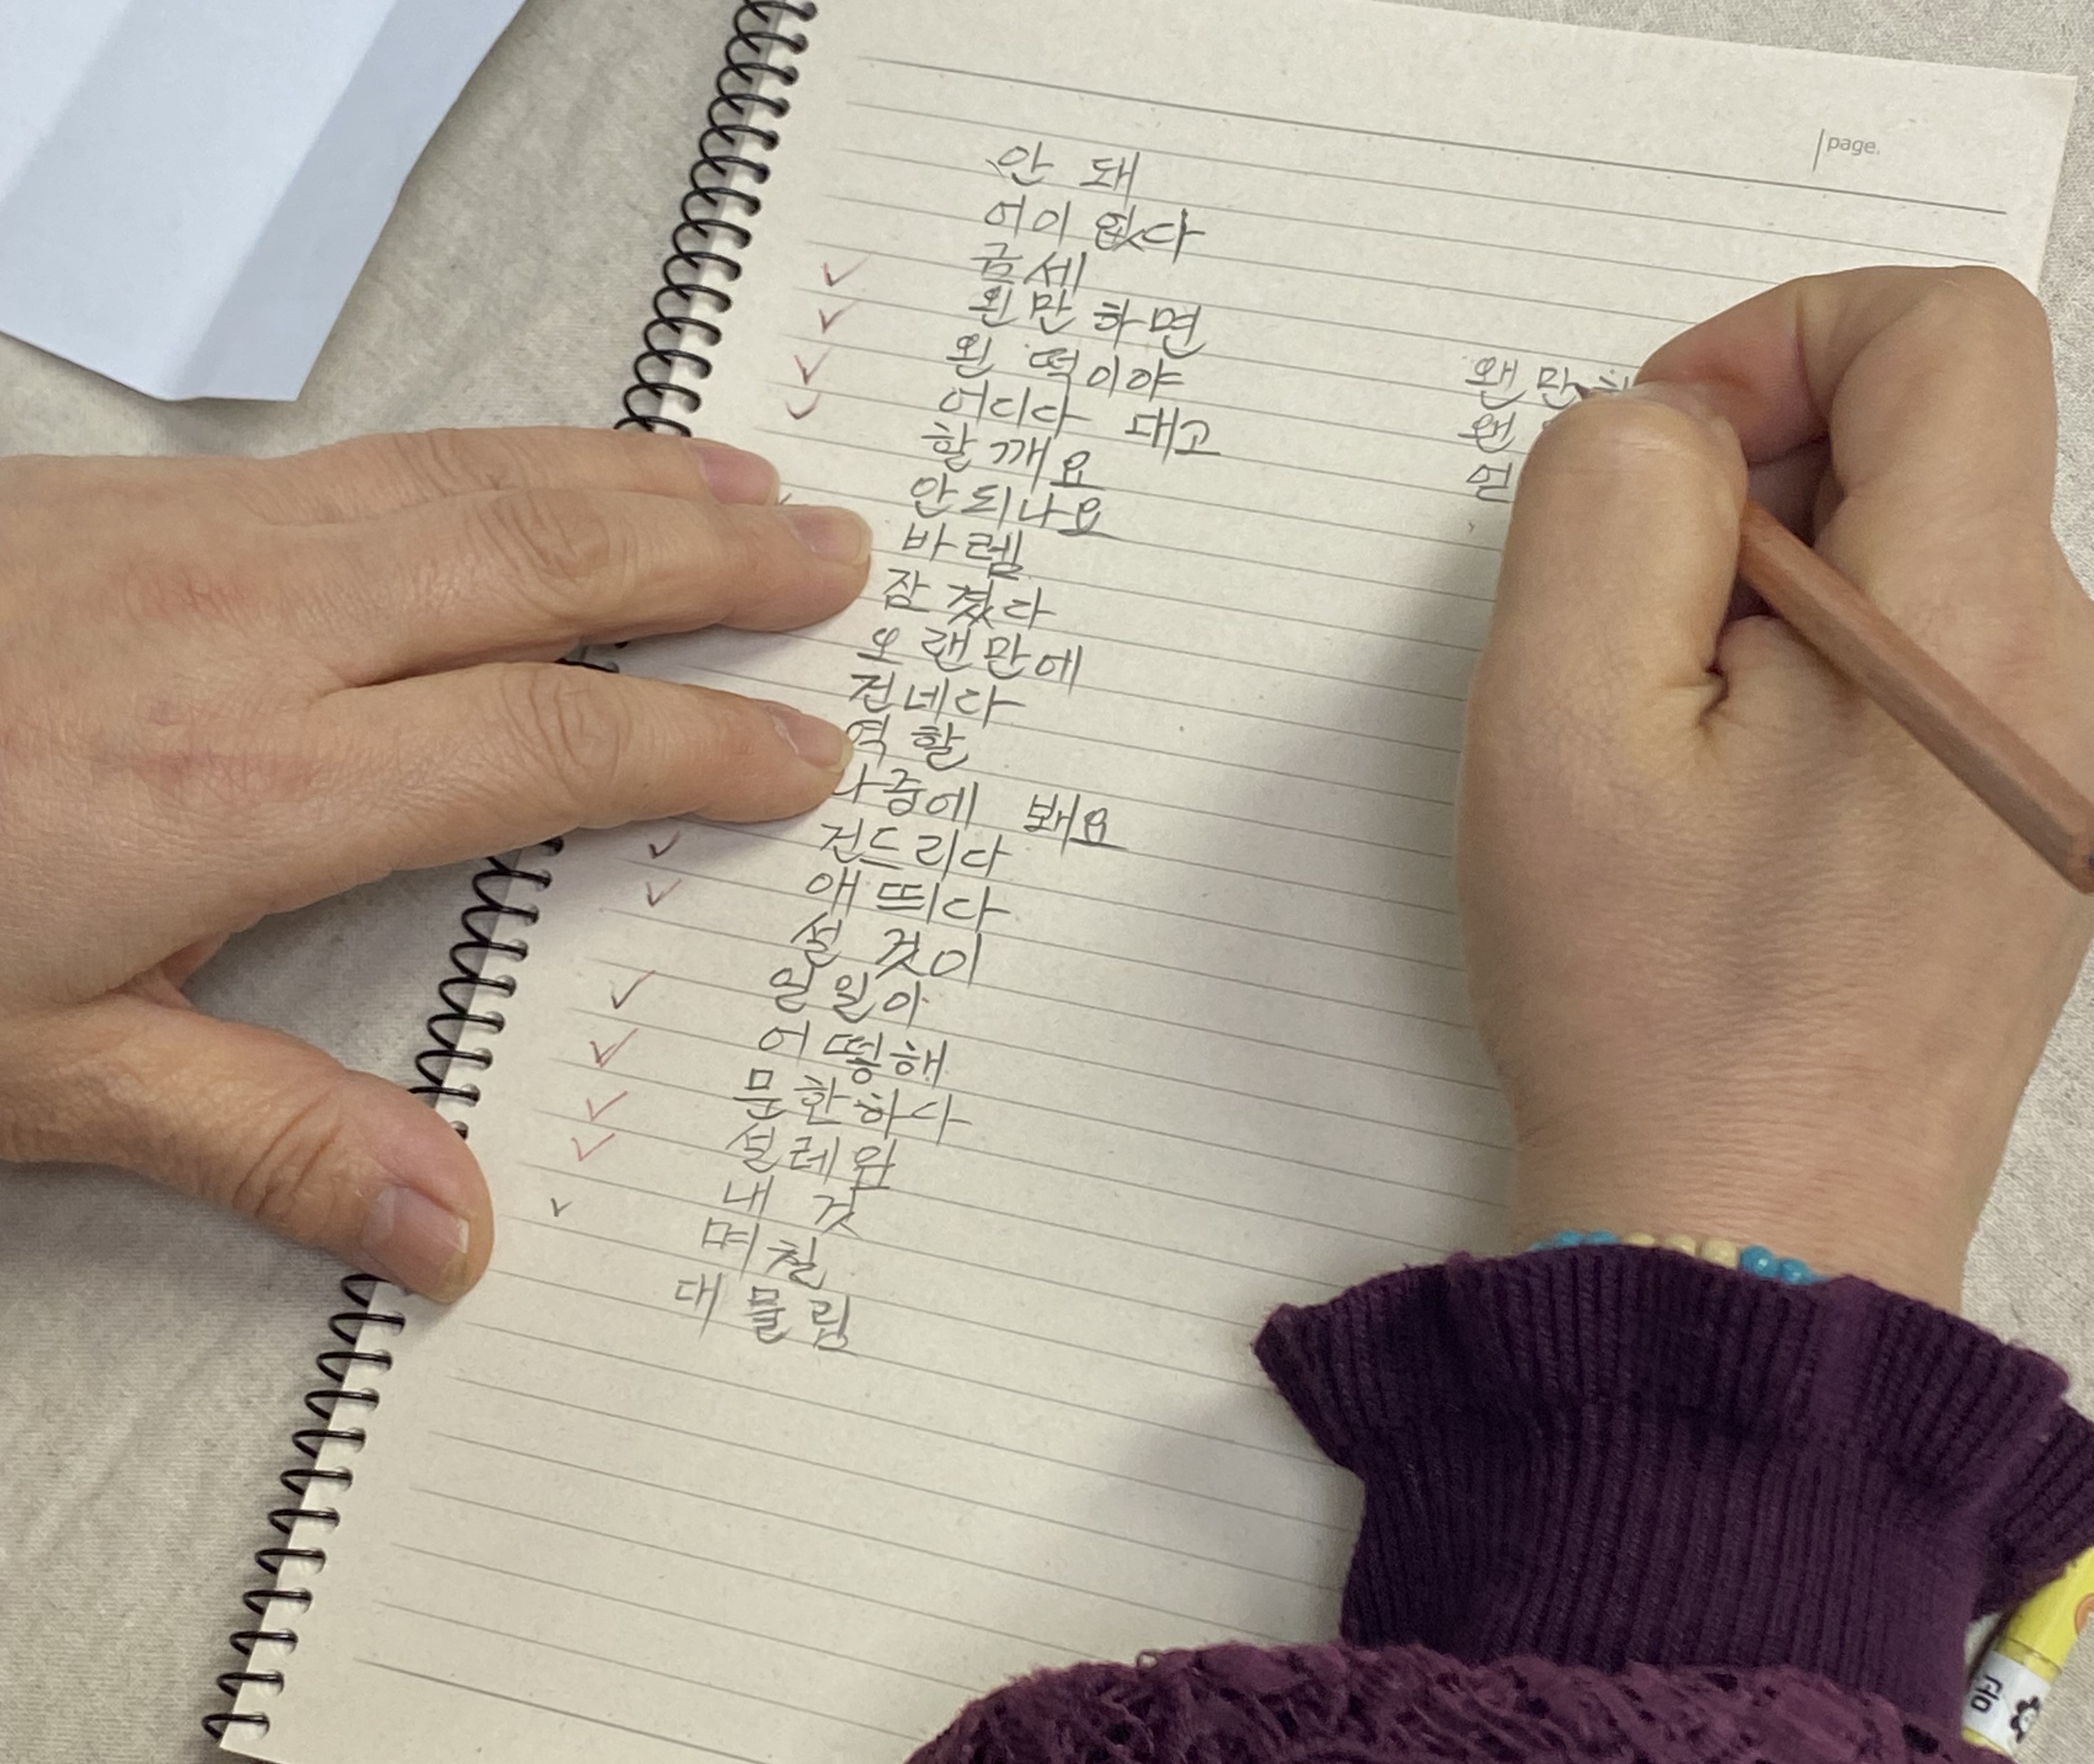 page.
안 돼
어이 없다
금세
왼만하면
왼 떡이야
어디다 대고
할깨요
안되나요
바렘
잠겼다
오랜만에
건네다
역할
나중에 봬요
건드리다
애띠다
설것이
일일이
어떻해
문환하다
설레임
내 것
며칠
대물림
왠만하
왠
얻
곰